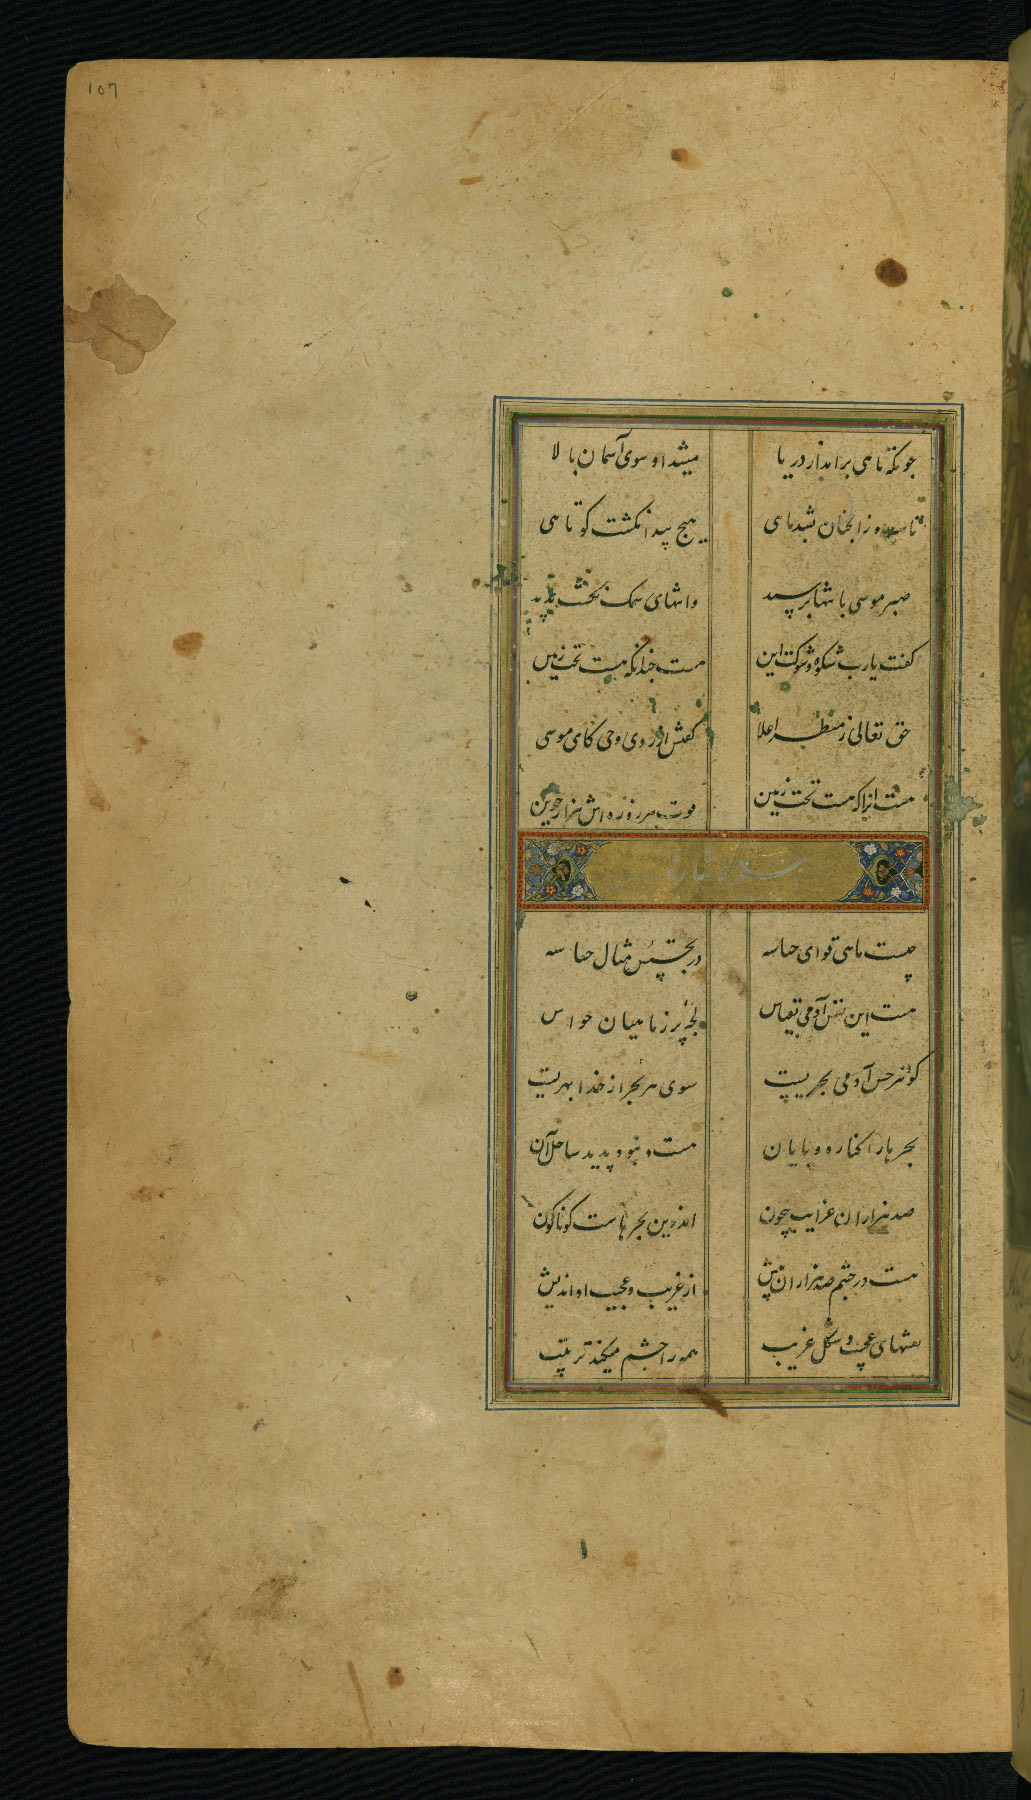 107
چونکه ماهی برآمد از دریا میشد او سوی آسمان بالا
تا سه روز آنچنان شد ماهی هیچ پیدا نگشت کوتاهی
صبر موسی بانتها برسید وانتهای سمک نگشت پدید
گفت یا رب شکوه و شوکت این هست چندانکه هست تحت زمین
حق تعالی ز منظر اعلا گفتش از روی وحی کای موسی
هست آنرا که هست تحت زمین قوت هر روزه اش هزار چنین
چیست ماهی قوای حساسه در تجسس مثال جاسه
هست این نفس آدمی بقیاس لجه پر ز ماهیان حواس
کو ز هر حس آدمی بحریست سوی هر بحر از خدا نهریست
بحرها را کناره و پایان هست و نبود پدید ساحل آن
صد هزاران غرایب بیچون اندرین بحرهاست گوناگون
هست در چشم صد هزاران بیش از غریب و عجیب او اندیش
نقشهای عجیب و شکل غریب همه را چشم میکند ترتیب